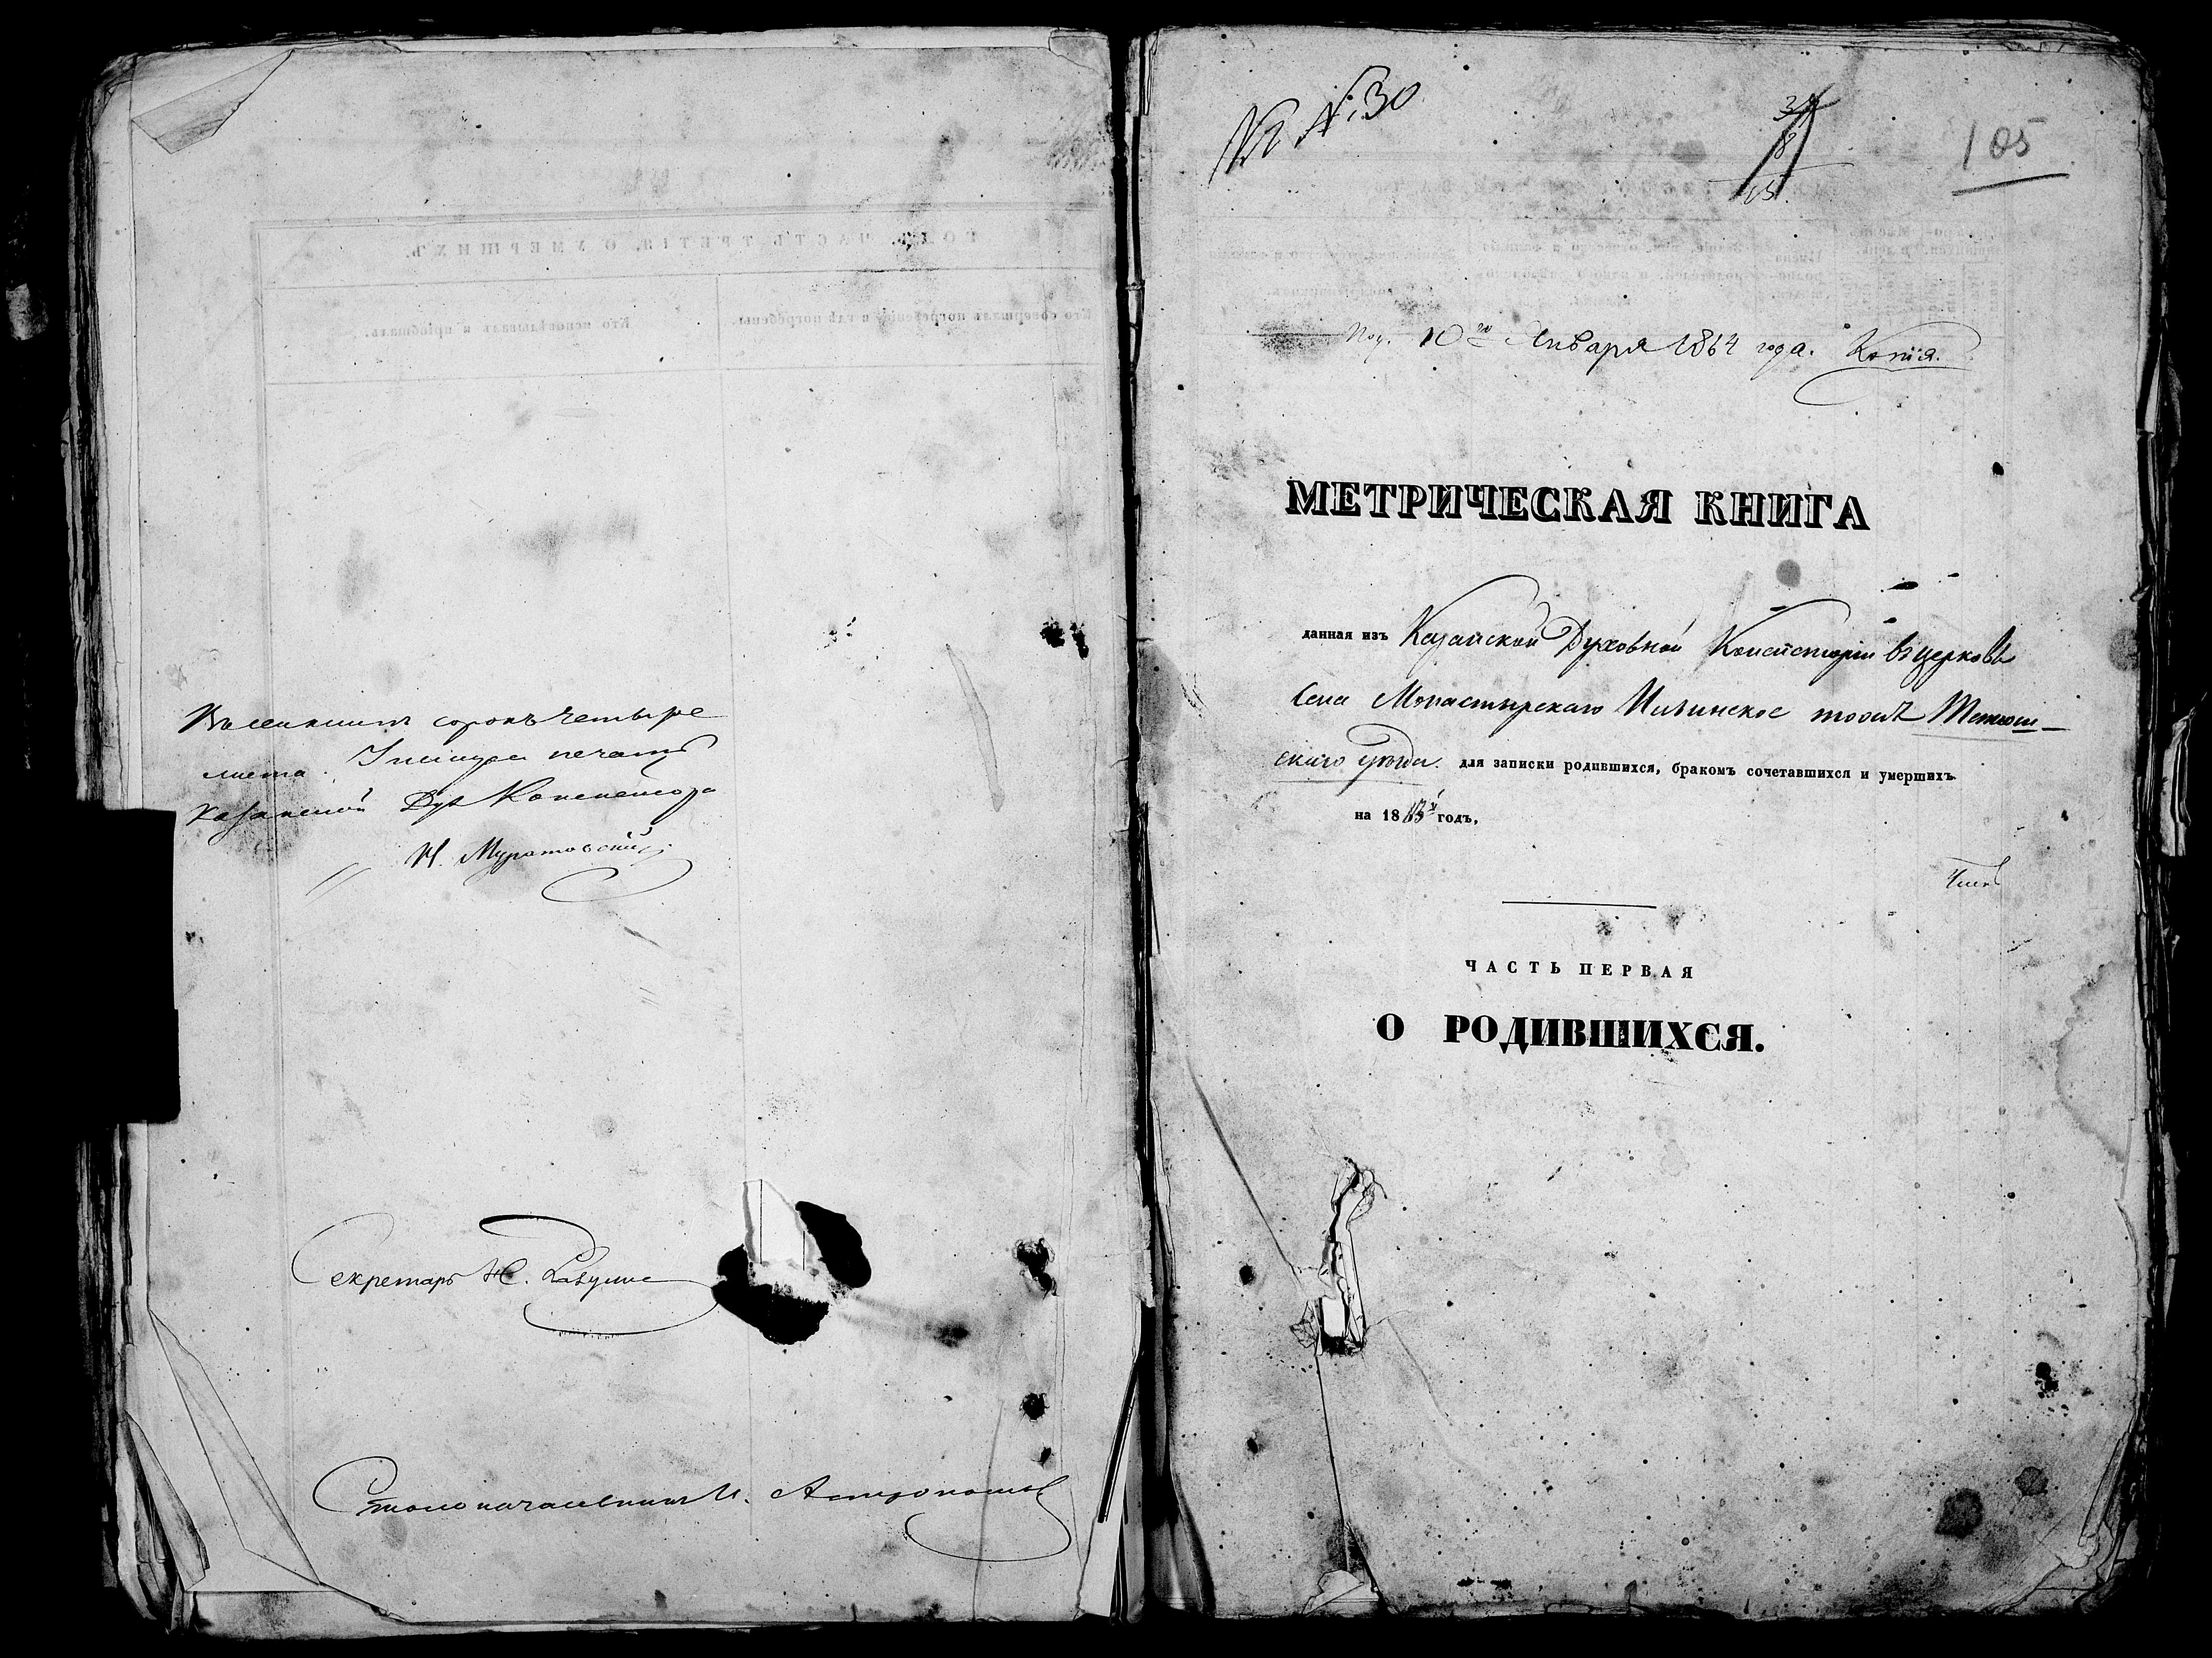 сорокъ четыре
листа. печати
Казанской Дух Консистор
Н. Муратовскій
Секретарь
Столоначальникъ И.
№ 30
105
Пол. 10го Января 1864 года. Копія.
МЕТРИЧЕСКАЯ КНИГА
данная изъ Казанской Духовной Консисторіи въ церковь
Села Монастырскаго Ильинское тожъ Тетюш-
скаго уѣзда. для записки родившихся, бракомъ сочетавшихся и умершихъ
на 1863й годъ,
ЧАСТЬ ПЕРВАЯ
О РОДИВШИХСЯ.